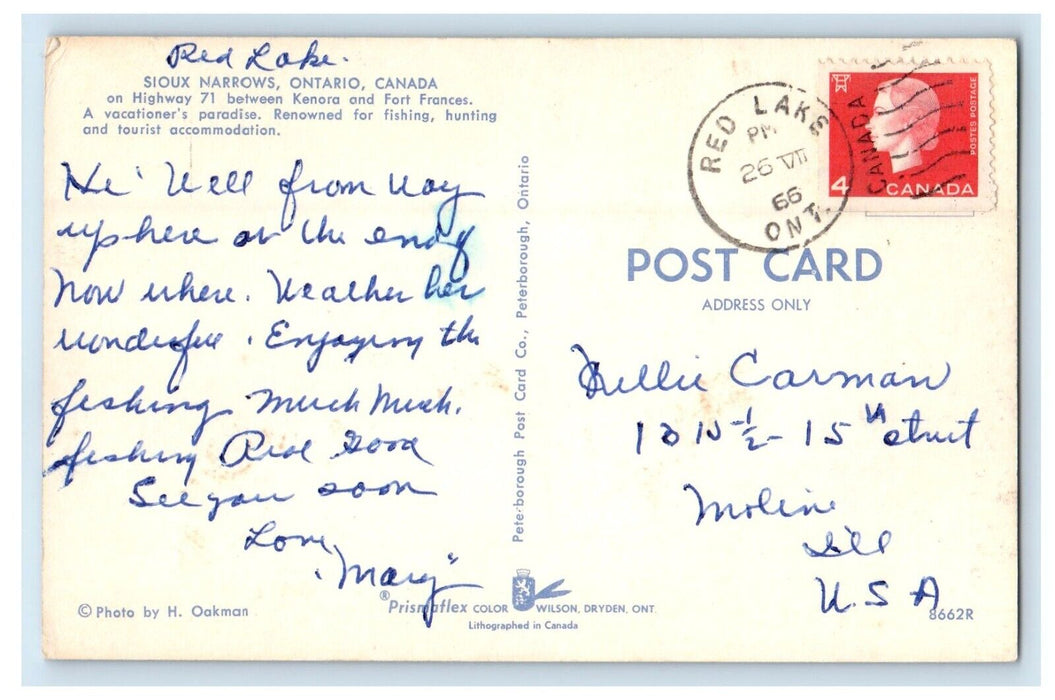 Red Lake.
SIOUX NARROWS, ONTARIO, CANADA
on Highway 71 between Kenora and Fort Frances.
A vacationer's paradise. Renowned for fishing, hunting
and tourist accommodation.
Hi' Well from way
up here at the end of
Now where. Weather her
wonderful. Enjoying the
fishing Much Much.
fishing Real Good
See you soon
Love,
"Mary"
© Photo by H. Oakman
Peterborough Post Card Co., Peterborough, Ontario
®Prismaflex COLOR WILSON, DRYDEN, ONT.
Lithographed in Canada
RED LAKE
PM
26 VII
66
ONT.
CANADA
4 CANADA
POSTES POSTAGE
POST CARD
ADDRESS ONLY
Nellie Carman
½ - 15th street
Moline
Ill
U.S A
8662R